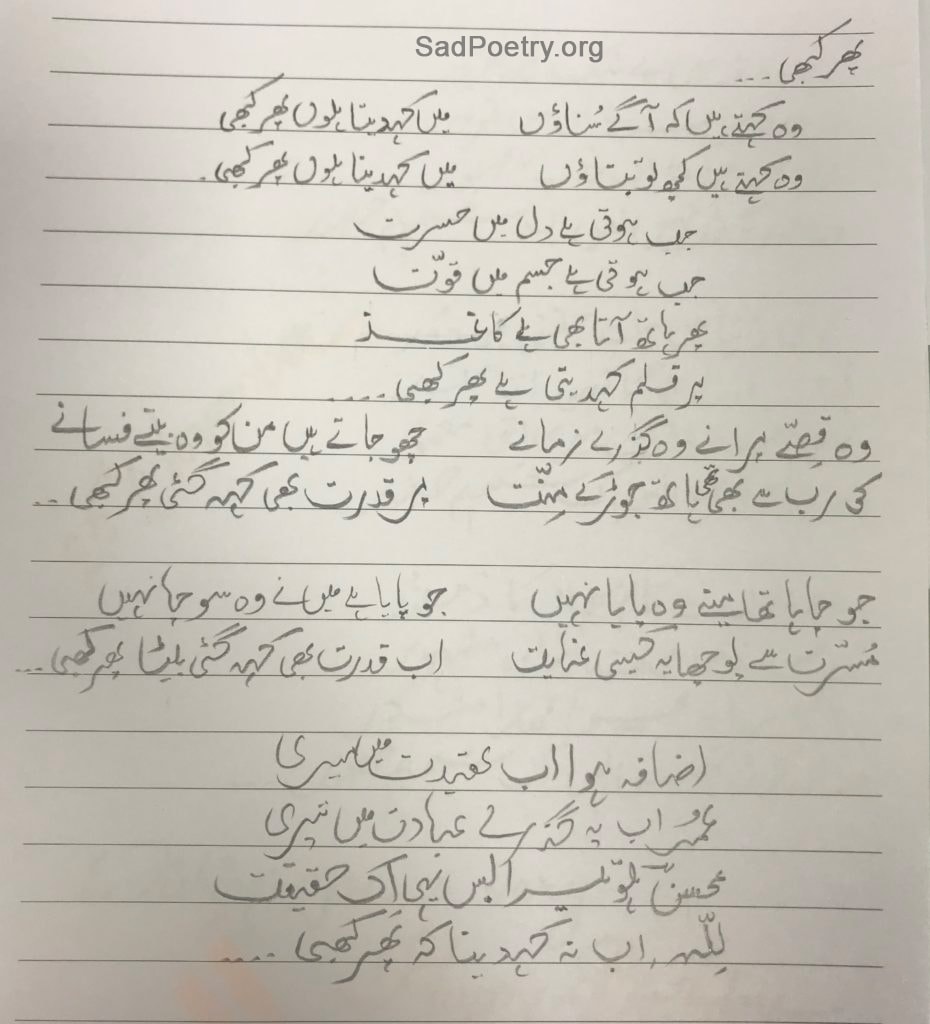 SadPoetry.org
پھر کبھی ...
وہ کہتے ہیں کہ آگے سُناؤں میں کہہ دیتا ہوں پھر کبھی
وہ کہتے ہیں کچھ تو بتاؤں میں کہہ دیتا ہوں پھر کبھی .
جب ہوتی ہے دل میں حسرت
جب ہوتی ہے جسم میں قوّت
پھر ہاتھ آتا بھی ہے کاغذ
پر قلم کہہ دیتی ہے پھر کبھی ....
وہ قِصّے پرانے وہ گزرے زمانے چھو جاتے ہیں من کو وہ بیتے فسانے
کی رب سے بھی ہاتھ جوڑ کے مِنّت پر قدرت بھی کہہ گئی پھر کبھی ...
جو چاہا تھا مینے وہ پایا نہیں جو پایا ہے میں نے وہ سوچا نہیں
مُسرّت سے پوچھا یہ کیسی عنایت اب قدرت بھی کہہ گئی بیٹا پھر کبھی ...
اضافہ ہوا اب عقیدت میں میری
عُمر اب یہ گزرے عبادت میں تیری
محسن تو ہے میرا بس یہی اک حقیقت
لِلّہ اب نہ کہہ دینا کہ پھر کبھی ....